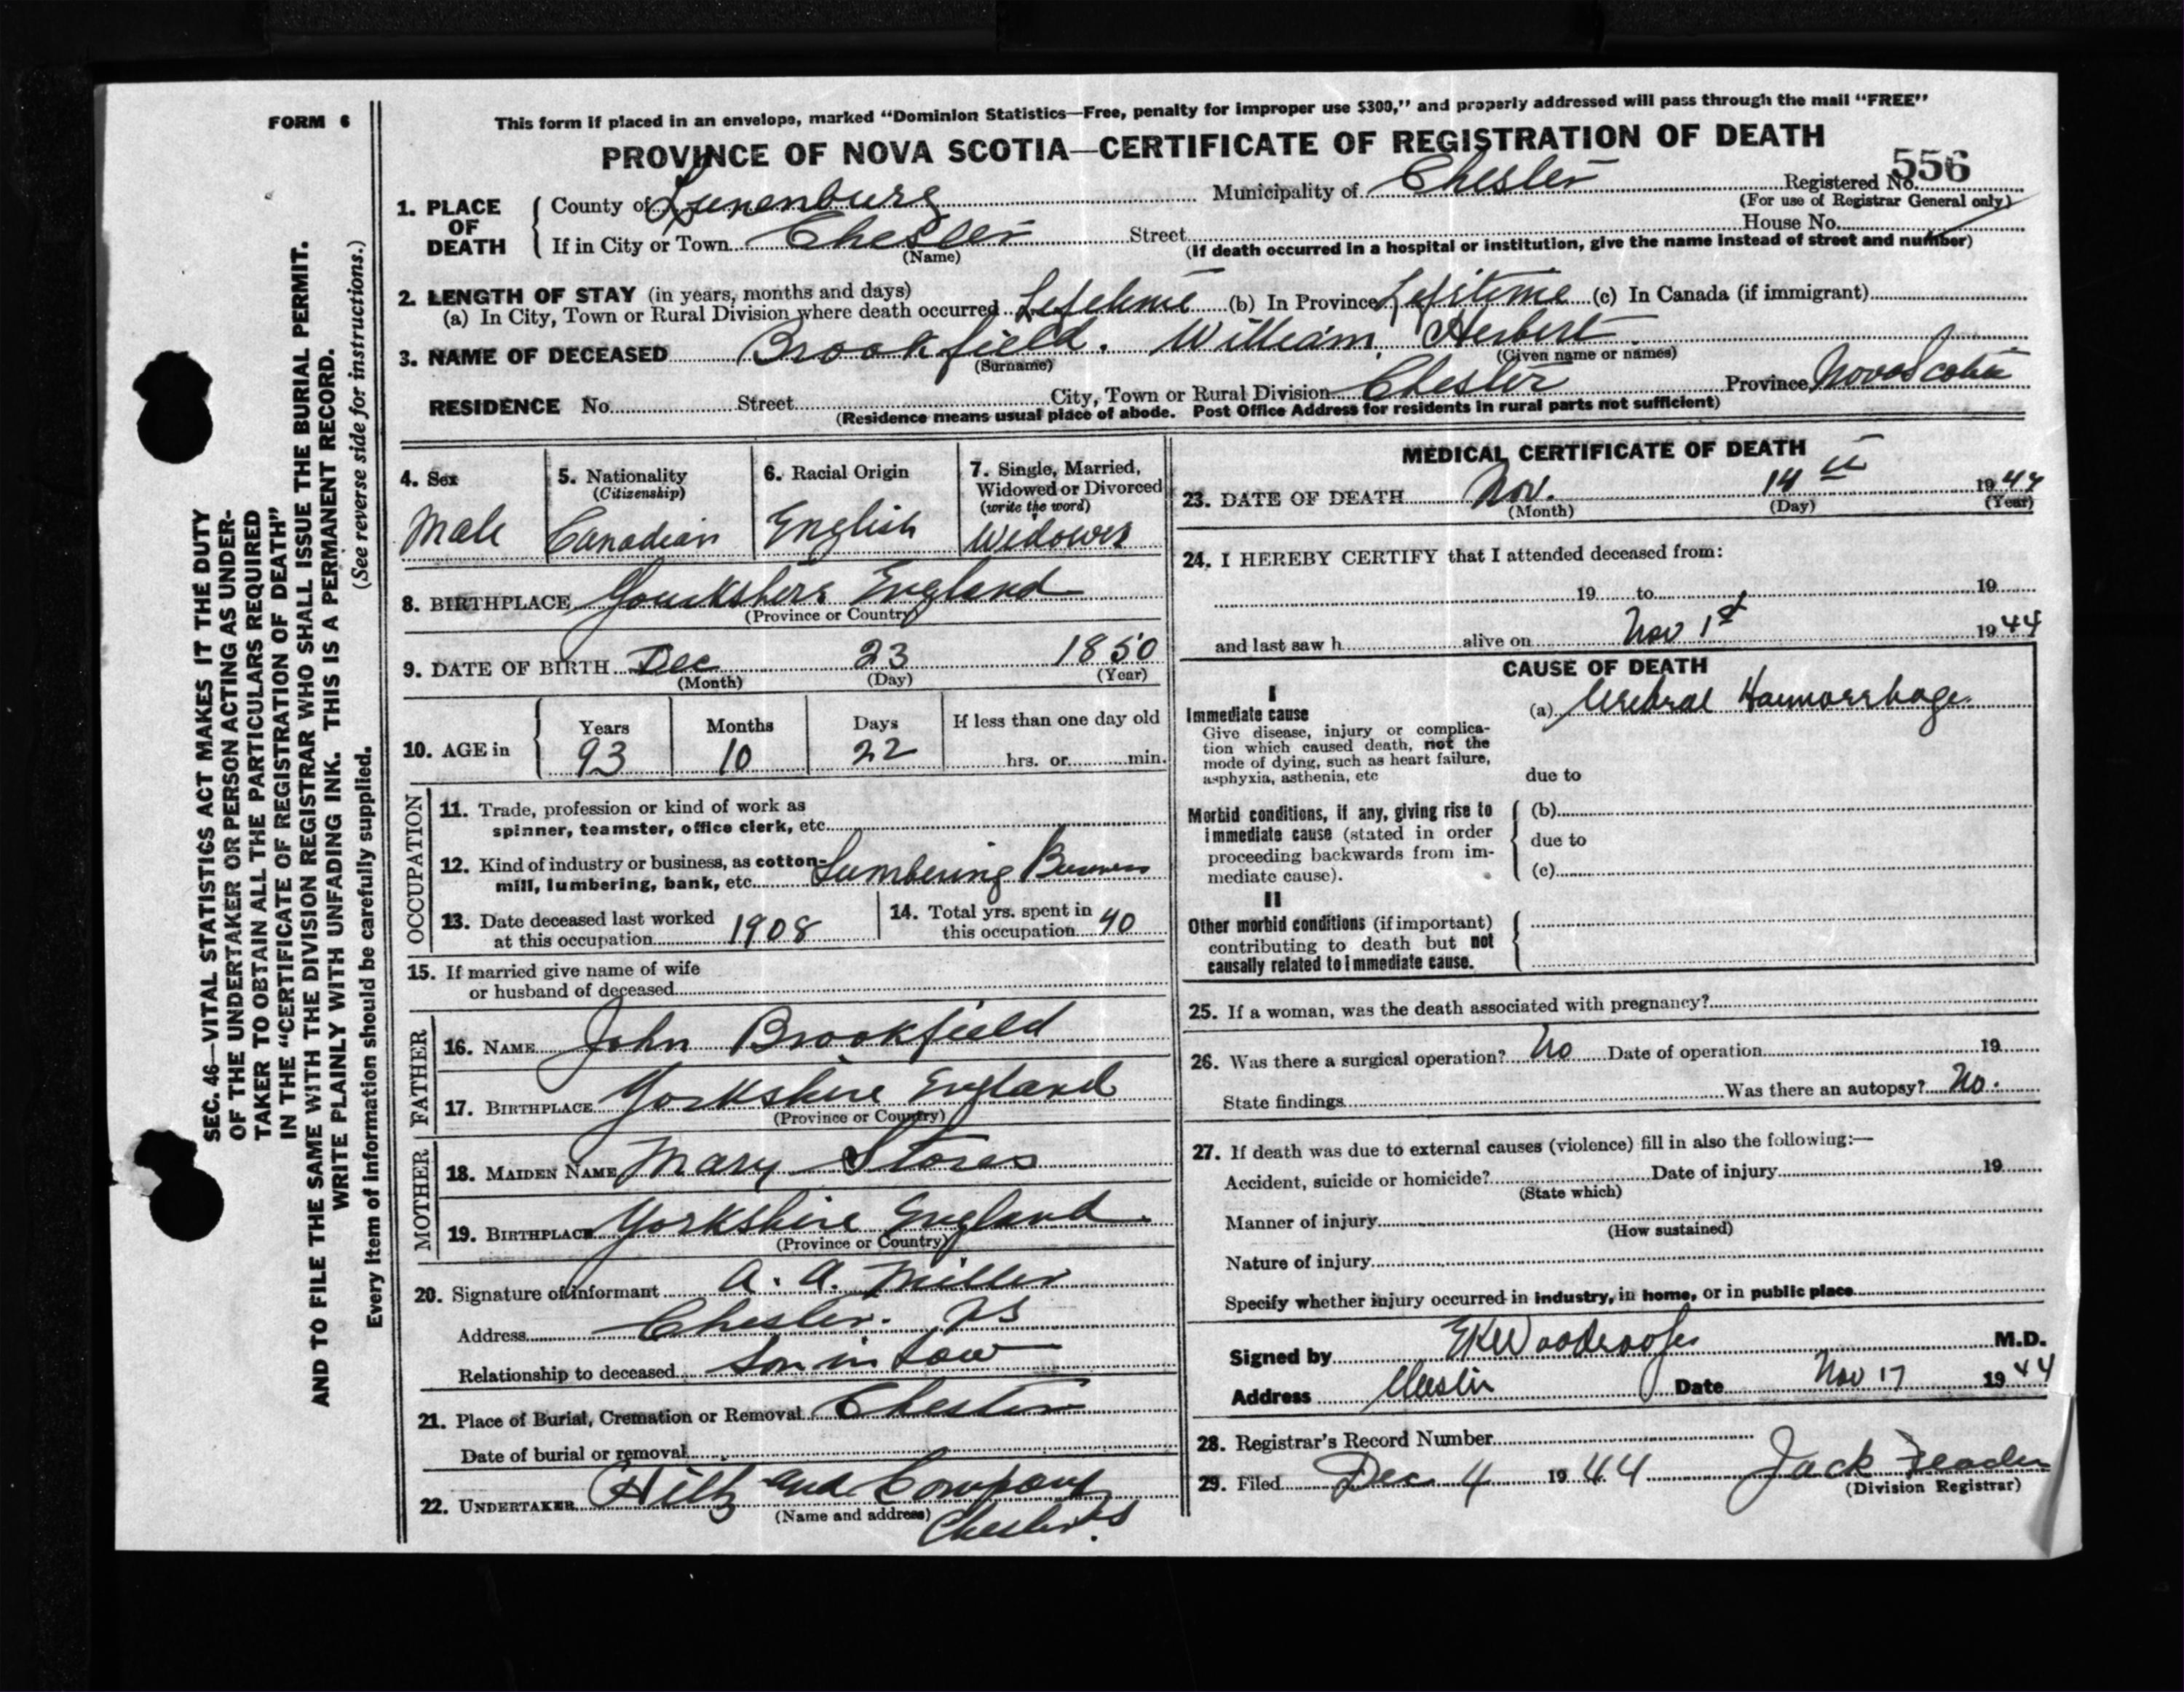 FORM 6
This form if placed in an envelope, marked "Dominion Statistics—Free, penalty for improper use $300," and properly addressed will pass through the mail "FREE"
PROVINCE OF NOVA SCOTIA—CERTIFICATE OF REGISTRATION OF DEATH
556
1. PLACE OF DEATH
County of Lunenburg Municipality of Chester Registered No.
(For use of Registrar General only)
House No.
If in City or Town Chester Street
(Name) (If death occurred in a hospital or institution, give the name instead of street and number)
2. LENGTH OF STAY (in years, months and days)
(a) In City, Town or Rural Division where death occurred Lifetime (b) In Province Lifetime (c) In Canada (if immigrant)
3. NAME OF DECEASED Brookfield. William Herbert
(Surname) (Given name or names)
RESIDENCE No. Street City, Town or Rural Division Chester Province Nova Scotia
(Residence means usual place of abode. Post Office Address for residents in rural parts not sufficient)
SEC. 46—VITAL STATISTICS ACT MAKES IT THE DUTY
OF THE UNDERTAKER OR PERSON ACTING AS UNDER-
TAKER TO OBTAIN ALL THE PARTICULARS REQUIRED
IN THE "CERTIFICATE OF REGISTRATION OF DEATH"
AND TO FILE THE SAME WITH THE DIVISION REGISTRAR WHO SHALL ISSUE THE BURIAL PERMIT.
WRITE PLAINLY WITH UNFADING INK. THIS IS A PERMANENT RECORD.
Every item of information should be carefully supplied. (See reverse side for instructions.)
4. Sex
Male
5. Nationality
(Citizenship)
Canadian
6. Racial Origin
English
7. Single, Married,
Widowed or Divorced
(write the word)
Widower
8. BIRTHPLACE Yourkshere England
(Province or Country)
9. DATE OF BIRTH Dec 23 1850
(Month) (Day) (Year)
10. AGE in
Years Months Days If less than one day old
93 10 22 hrs. or min.
OCCUPATION
11. Trade, profession or kind of work as
spinner, teamster, office clerk, etc.
12. Kind of industry or business, as cotton-
mill, lumbering, bank, etc. Lumbering
13. Date deceased last worked
at this occupation 1908
14. Total yrs. spent in
this occupation 40
15. If married give name of wife
or husband of deceased
FATHER
16. NAME John Brookfield
17. BIRTHPLACE Yorkshire England
(Province or Country)
MOTHER
18. MAIDEN NAME Mary Stores
19. BIRTHPLACE Yorkshire England
(Province or Country)
20. Signature of informant A. A. Miller
Address Chester. NS
Relationship to deceased Son in Law
21. Place of Burial, Cremation or Removal Chester
Date of burial or removal
22. UNDERTAKER Hiltz and Company
(Name and address) Chester NS
MEDICAL CERTIFICATE OF DEATH
23. DATE OF DEATH Nov. 14 1944
(Month) (Day) (Year)
24. I HEREBY CERTIFY that I attended deceased from:
19 to 19
and last saw h alive on Nov 1st 1944
CAUSE OF DEATH
I
Immediate cause
Give disease, injury or complica-
tion which caused death, not the
mode of dying, such as heart failure,
asphyxia, asthenia, etc
(a) Cerebral Haemorrhage.
due to
Morbid conditions, if any, giving rise to
immediate cause (stated in order
proceeding backwards from im-
mediate cause).
(b)
due to
(c)
II
Other morbid conditions (if important)
contributing to death but not
causally related to immediate cause.
25. If a woman, was the death associated with pregnancy?
26. Was there a surgical operation? No Date of operation 19
State findings Was there an autopsy? No.
27. If death was due to external causes (violence) fill in also the following:—
Accident, suicide or homicide? Date of injury 19
(State which)
Manner of injury
(How sustained)
Nature of injury
Specify whether injury occurred in industry, in home, or in public place
Signed by M.D.
Address Chester Date Nov 17 1944
28. Registrar's Record Number
29. Filed Dec 4 1944 Jack
(Division Registrar)